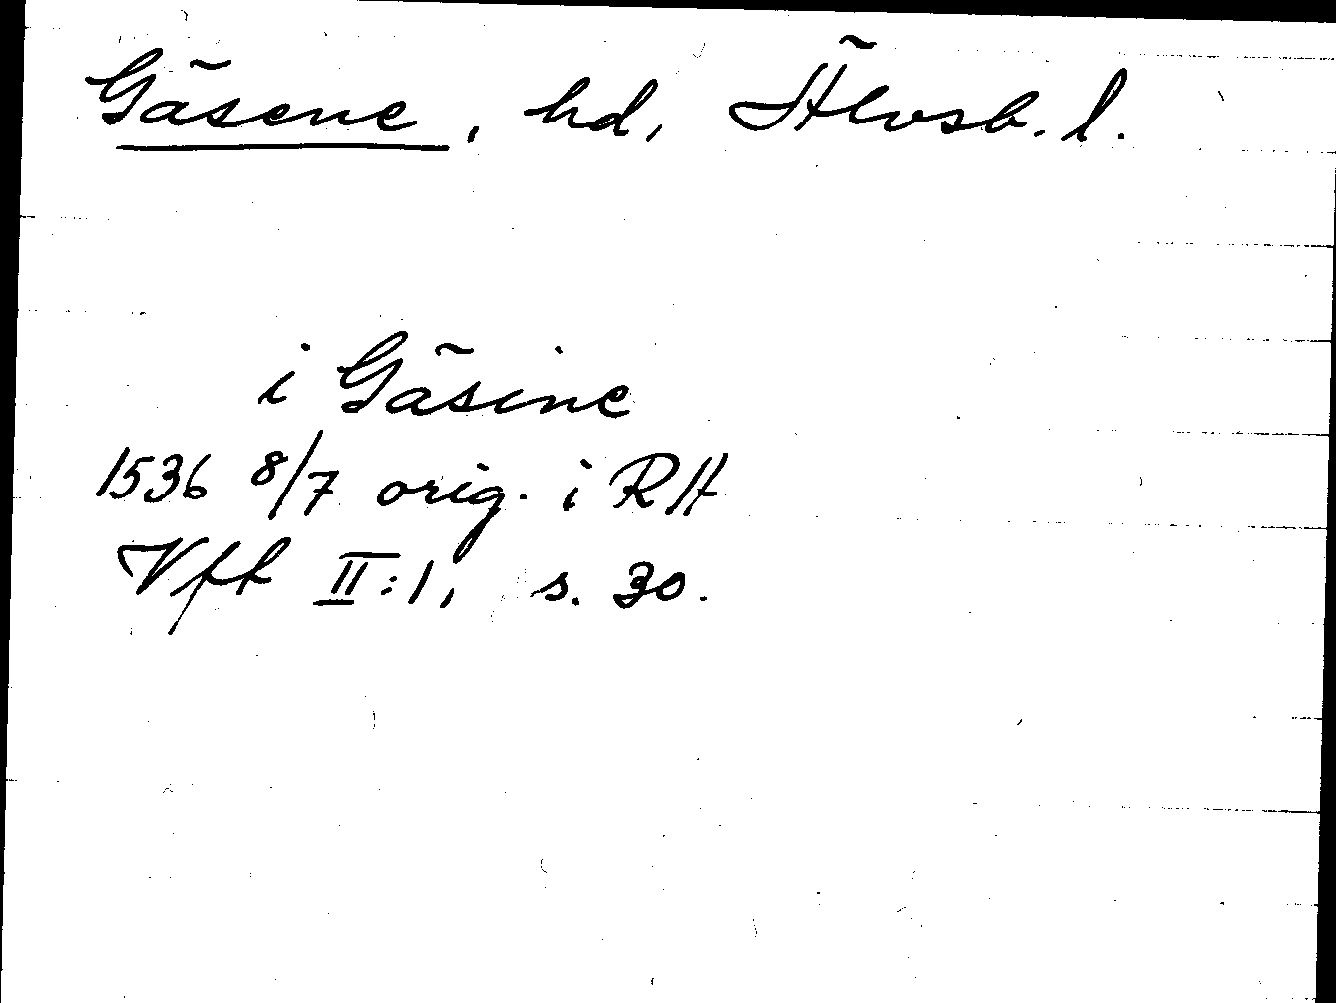 Gäsene, hd, Älvsb. l.
i Gäsine
1536 8/7 orig. i RA
Vft II:1, s. 30.